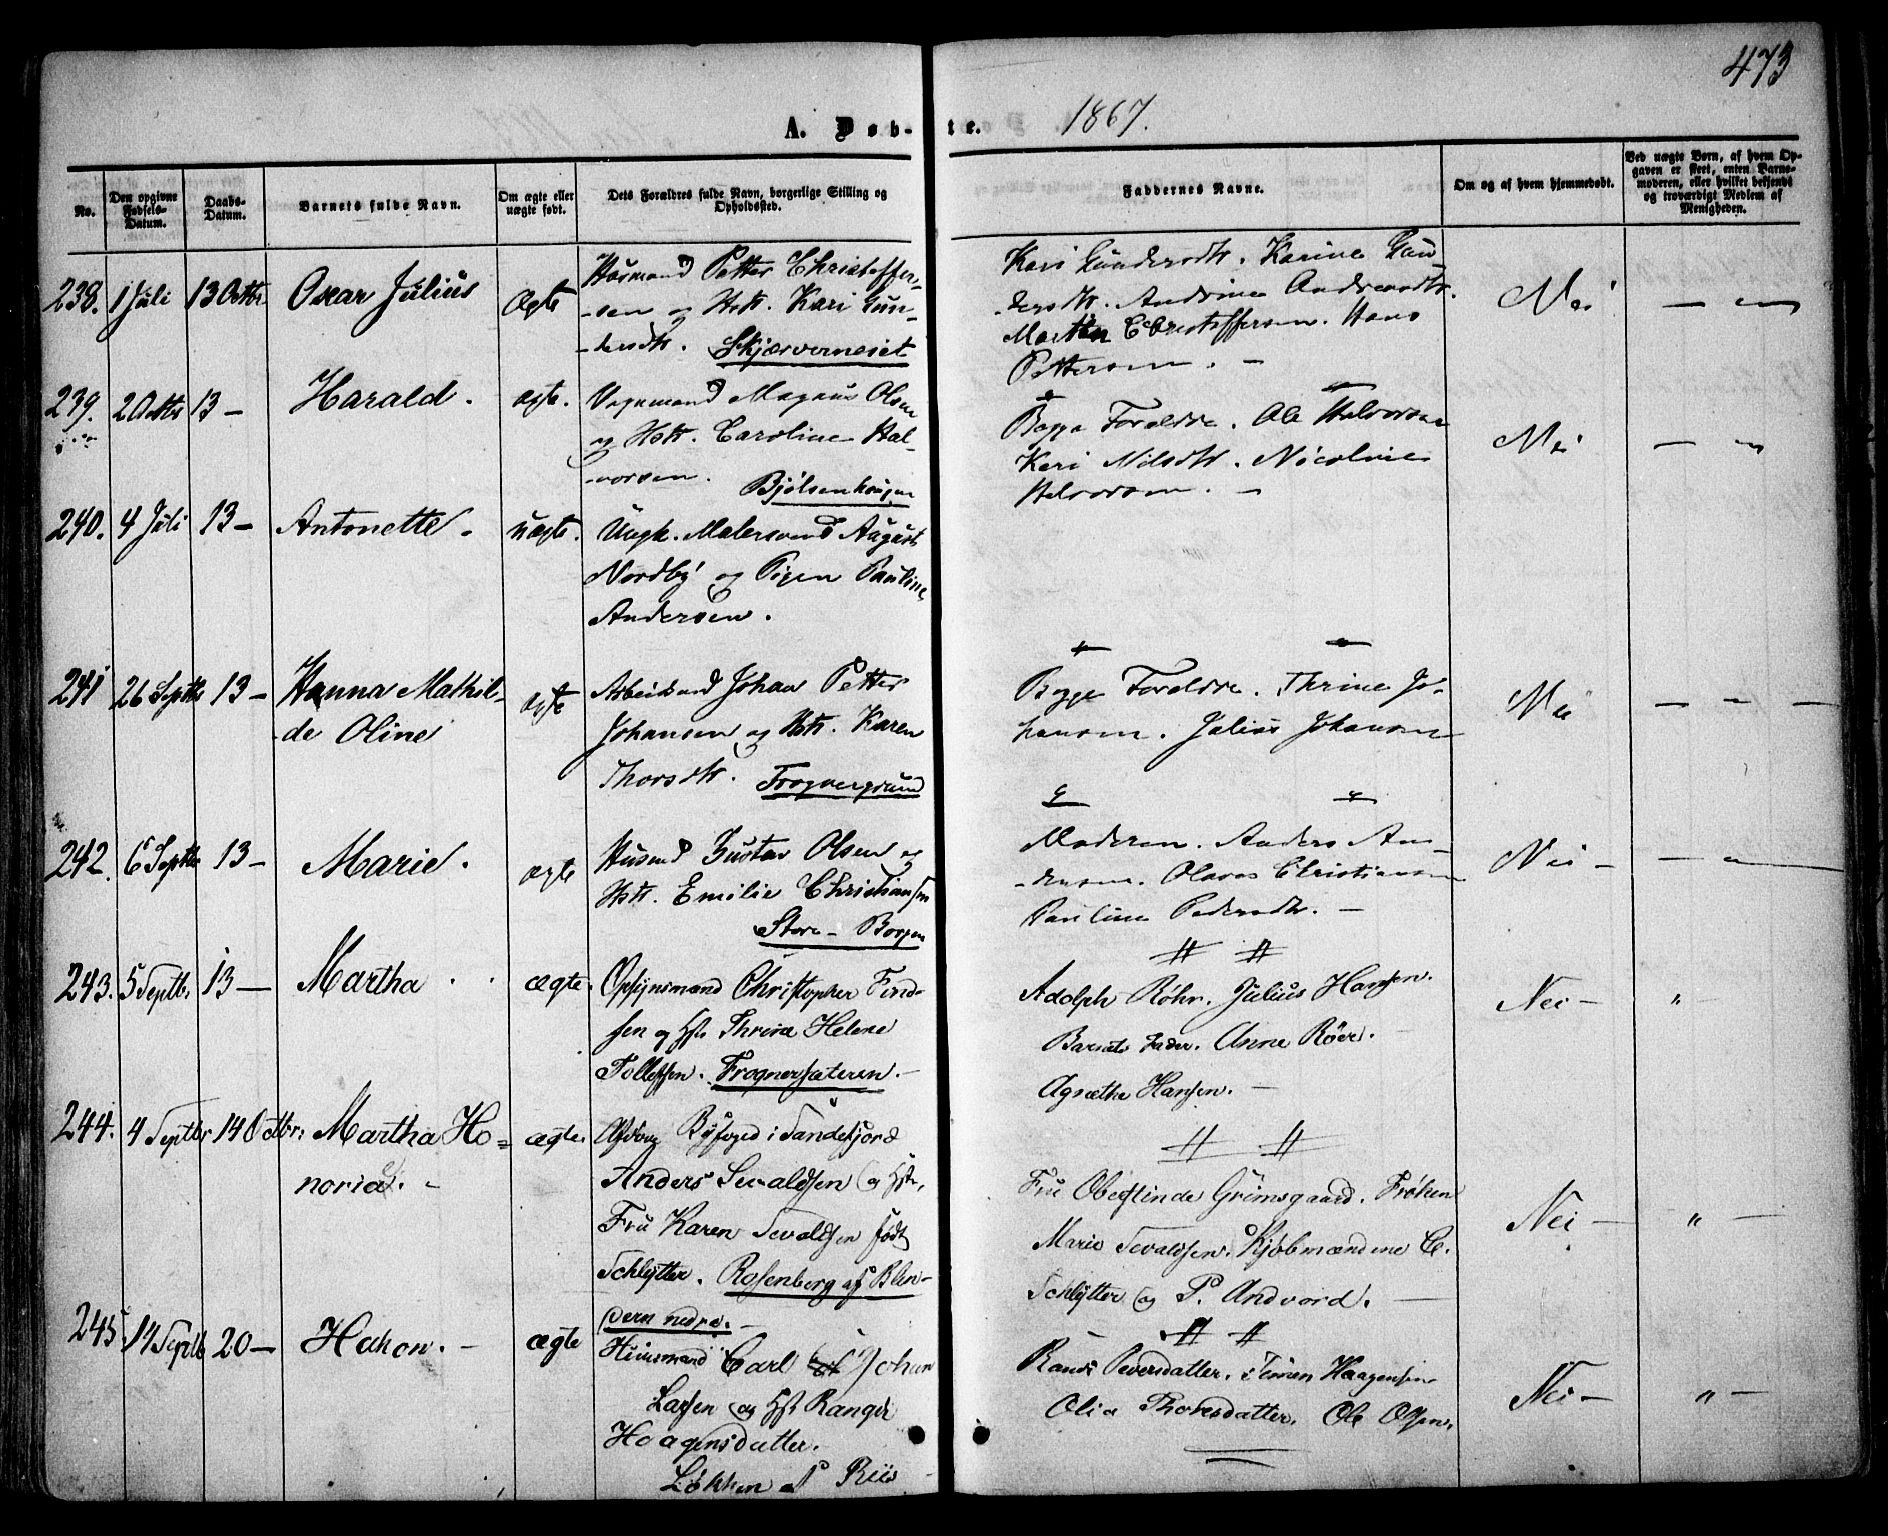 473
A. Døb-te. 1867.
No.
Den opgivne Fødsels-Datum.
Daabs-Datum.
Barnets fulde Navn.
Om ægte eller uægte født.
Dets Forældres fulde Navn, borgerlige Stilling og Opholdssted.
Faddernes Navne.
Om og af hvem hjemmedøbt.
Ved uægte Børn, af hvem Opgaven er skeet, enten Barnemoderen, eller hvilket bekjendt og troværdigt Medlem af Menigheden.
238. 1 Juli 13 Octbr Oscar Julius Ægte
Husmand Petter Christoffer-
-sen og Hstr. Kari Gun-
-dersdtr. Skjærvernesiet
Kari Gundersdtr. Karine Gun
-dersdtr. Andrine Andreasdtr.
Martin Christoffersen. Hans
Pettersen. –
Nei — —
239. 2 Octbr 13 – Harald. ægte.
Vognmand Magnus Olsen
og Hstr. Caroline Hal-
-vorsen. Bjølsenhougen
Begge Foreldre. Ole Halvorsen
Kari Nilsdtr. Nicoline
Halvorsen. –
Nei — —
240. 4 Juli 13 – Antonette. uægte.
Ungk. Malersvend August
Nordby og Pigen Pauline
Andersen.
241 26 Septbr 13 – Hanna Mathil-
-de Oline ægte
Arbeidsmd Johan Petter
Johansen og Hstr. Karen
Thorsdtr. Frognergrund
Begge Foreldre. Thrine Jo-
hansen. Julius Johansen
Nei — — —
242. 6 Septbr 13 – Marie. ægte
Husmd Gustav Olsen og
Hstr. Emilie Christiansen
Store-Borgen
Moderen. Anders An-
-dersen. Olaves Christiansen
Pauline Pedersdtr. –
Nei — — —
243. 5 Septbr. 13 — Martha . . ægte.
Opsynsmand Christopher Find-
sen og Hst. Thrine Helene
Tollefsen. Frognersæteren. –
Adolph Røhr. Julius Hansen.
Barnets Fader. Anne Röer.
Agnethe Hansen. –
Nei — „ —
244. 4 Septbr 14 Octbr: Martha Ho=
noria. – ægte.
Byfoged i Sandefjord
Anders Sevaldsen og Hst.,
Fru Karen Sevaldsen født
Schlytter. Rosenberg af Blin-
dern nedre. –
Fru Grimsgaard. Frøken
Marie Sevaldsen. Kjøbmændene C.
Schlytter og P. Andvord. —
Nei — „ —
245 14 Septb 20 — Hakon. – ægte
Huusmand Carl Johan
Larsen og Hst Rangdi
Haagensdatter.
Løkken af Riis –
Randi Pedersdatter. Simen Haagensen
Olia Thorsdatter. Ole Olsen.
Nei — „ —